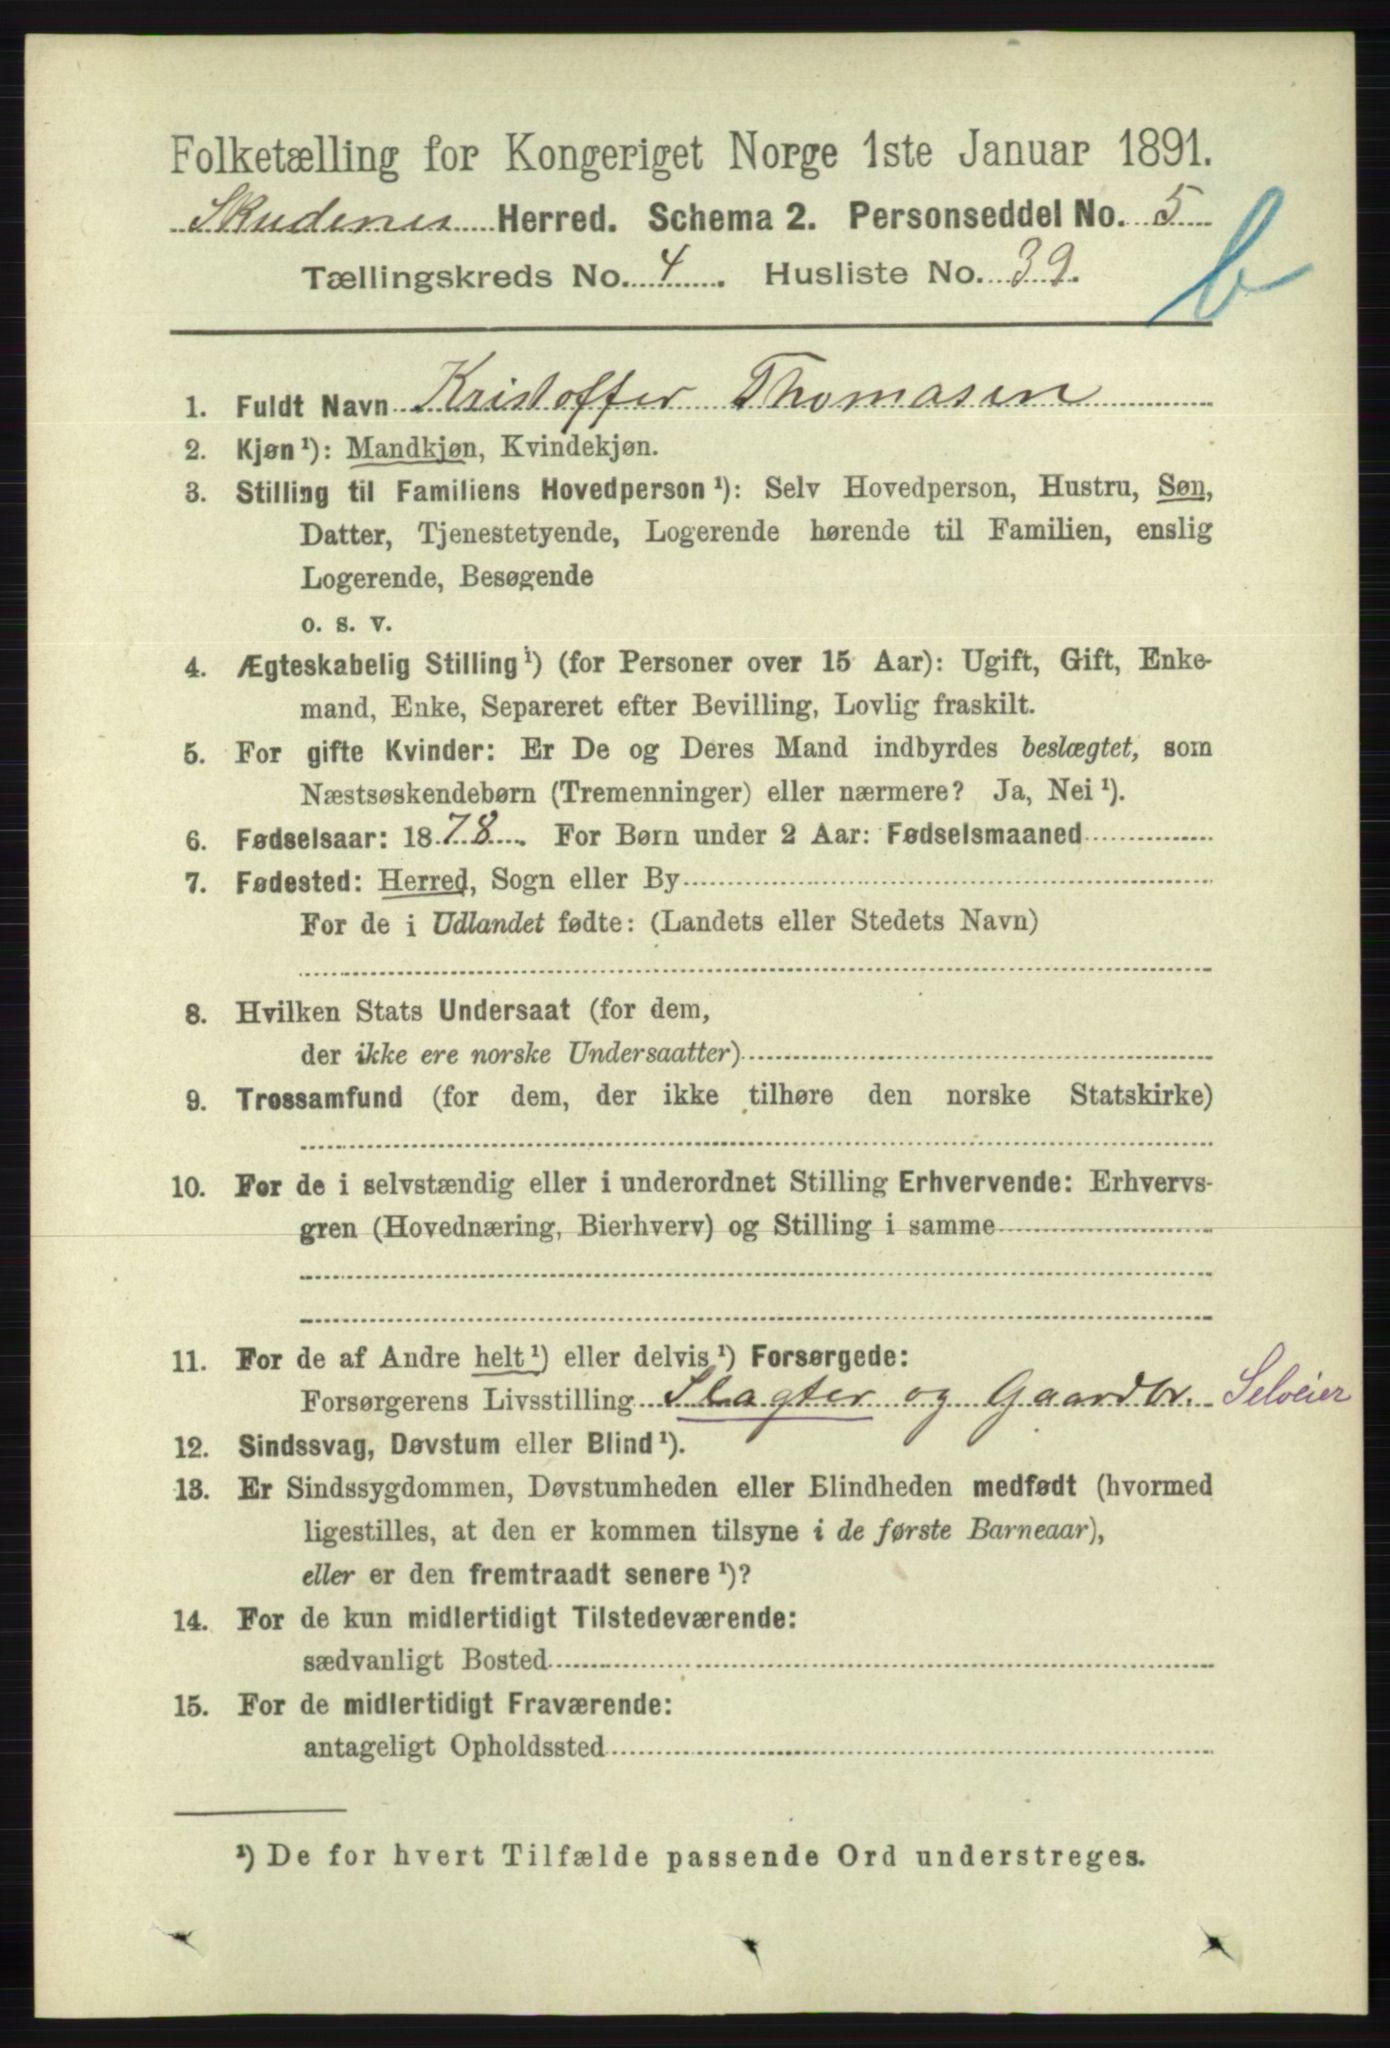 Folketælling for Kongeriget Norge 1ste Januar 1891.
Skudenes Herred. Schema 2. Personseddel No. 5
Tællingskreds No. 4. Husliste No. 39.
b
1. Fuldt Navn Kristoffer Thomasen
2. Kjøn¹): Mandkjøn, Kvindekjøn.
3. Stilling til Familiens Hovedperson¹): Selv Hovedperson, Hustru, Søn,
Datter, Tjenestetyende, Logerende hørende til Familien, enslig
Logerende, Besøgende
o. s. v.
4. Ægteskabelig Stilling¹) (for Personer over 15 Aar): Ugift, Gift, Enke-
mand, Enke, Separeret efter Bevilling, Lovlig fraskilt.
5. For gifte Kvinder: Er De og Deres Mand indbyrdes beslægtet, som
Næstsøskendebørn (Tremenninger) eller nærmere? Ja, Nei¹).
6. Fødselsaar: 1878. For Børn under 2 Aar: Fødselsmaaned
7. Fødested: Herred, Sogn eller By
For de i Udlandet fødte: (Landets eller Stedets Navn)
8. Hvilken Stats Undersaat (for dem,
der ikke ere norske Undersaatter)
9. Trossamfund (for dem, der ikke tilhøre den norske Statskirke)
10. For de i selvstændig eller i underordnet Stilling Erhvervende: Erhvervs-
gren (Hovednæring, Bierhverv) og Stilling i samme
11. For de af Andre helt¹) eller delvis¹) Forsørgede:
Forsørgerens Livsstilling Slagter og Gaardbr. Selveier
12. Sindssvag, Døvstum eller Blind¹).
13. Er Sindssygdommen, Døvstumheden eller Blindheden medfødt (hvormed
ligestilles, at den er kommen tilsyne i de første Barneaar),
eller er den fremtraadt senere¹)?
14. For de kun midlertidigt Tilstedeværende:
sædvanligt Bosted
15. For de midlertidigt Fraværende:
antageligt Opholdssted
¹) De for hvert Tilfælde passende Ord understreges.